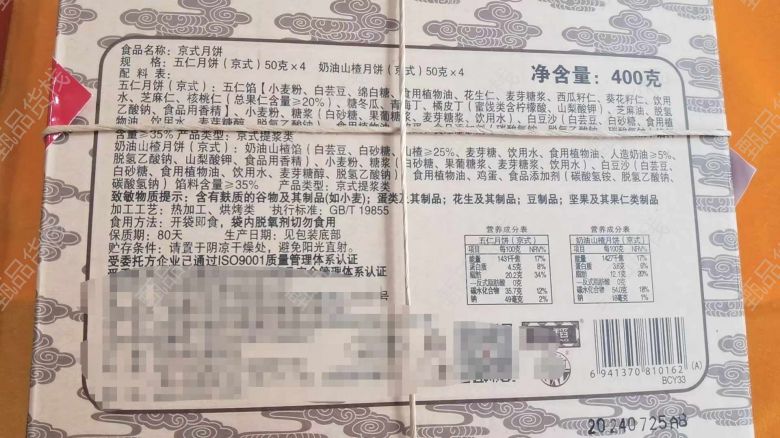 食品名称：京式月饼
规 格：五仁月饼（京式）50克×4 奶油山楂月饼（京式）50克×4
净含量：400克
配 料 表：
五仁月饼（京式）：五仁馅【小麦粉、白芸豆、绵白糖、食用植物油、花生仁、麦芽糖浆、西瓜籽仁、葵花籽仁、饮用
水、芝麻仁、核桃仁（总果仁含量≥20%）、糖冬瓜、青梅丁、橘皮丁
含量≥35% 产品类型：京式提浆类
奶油山楂月饼（京式）：奶油山楂馅（白芸豆、白砂糖、 山楂≥25%、麦芽糖、饮用水、食用植物油、人造奶油≥5%、
脱氢乙酸钠、山梨酸钾、食品用香精）、小麦粉、糖浆（白砂糖、果葡糖浆、麦芽糖浆、饮用水）、白豆沙（白芸豆、
白砂糖、食用植物油、饮用水、麦芽糖醇、脱氢乙酸钠）、食用植物油、鸡蛋、食品添加剂（碳酸氢铵、脱氢乙酸钠、
碳酸氢钠）馅料含量≥35% 产品类型：京式提浆类
致敏物质提示：含有麸质的谷物及其制品(如小麦)；蛋类及其制品；花生及其制品；豆制品；坚果及其果仁类制品
加工工艺：热加工、烘烤类 执行标准：GB/T 19855
食用方法：开袋即食，袋内脱氧剂切勿食用
保质期：80天 生产日期：见包装底部
贮存条件：请置于阴凉干燥处，避免阳光直射。
受委托方企业已通过ISO9001质量管理体系认证
管理体系认证
号
营养成分表
五仁月饼（京式）
项目 每100克 NRV%
能量 1431千焦 17%
蛋白质 4.5克 8%
脂肪 20.2克 34%
—反式脂肪酸 0克
碳水化合物 35.7克 12%
钠 49毫克 2%
营养成分表
奶油山楂月饼（京式）
项目 每100克 NRV%
能量 1427千焦 17%
蛋白质 3.6克 6%
脂肪 12.1克 20%
—反式脂肪酸 0克
碳水化合物 54.0克 18%
钠 毫克 1%
6 941370 810162 (A)
BCY33
20240725AB
甄品货栈